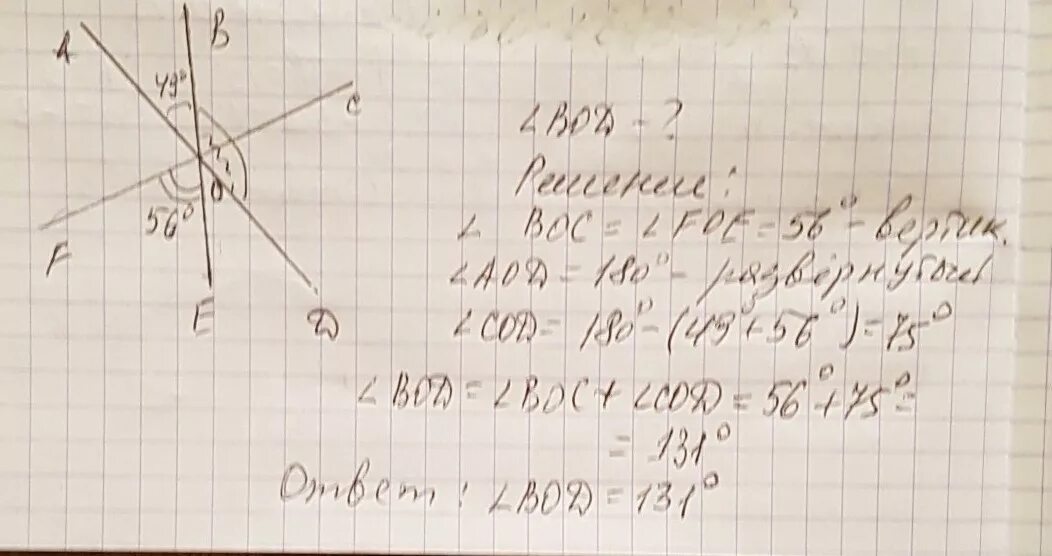 B
A
49°
C
O
56°
F
E
D
∠BOD - ?
Решение:
∠ BOC = ∠FOE = 56° - вертик.
∠AOD = 180° - развёрнутый
∠COD = 180° - (49° + 56°) = 75°
∠BOD = ∠BOC + ∠COD = 56° + 75° =
= 131°
Ответ: ∠BOD = 131°